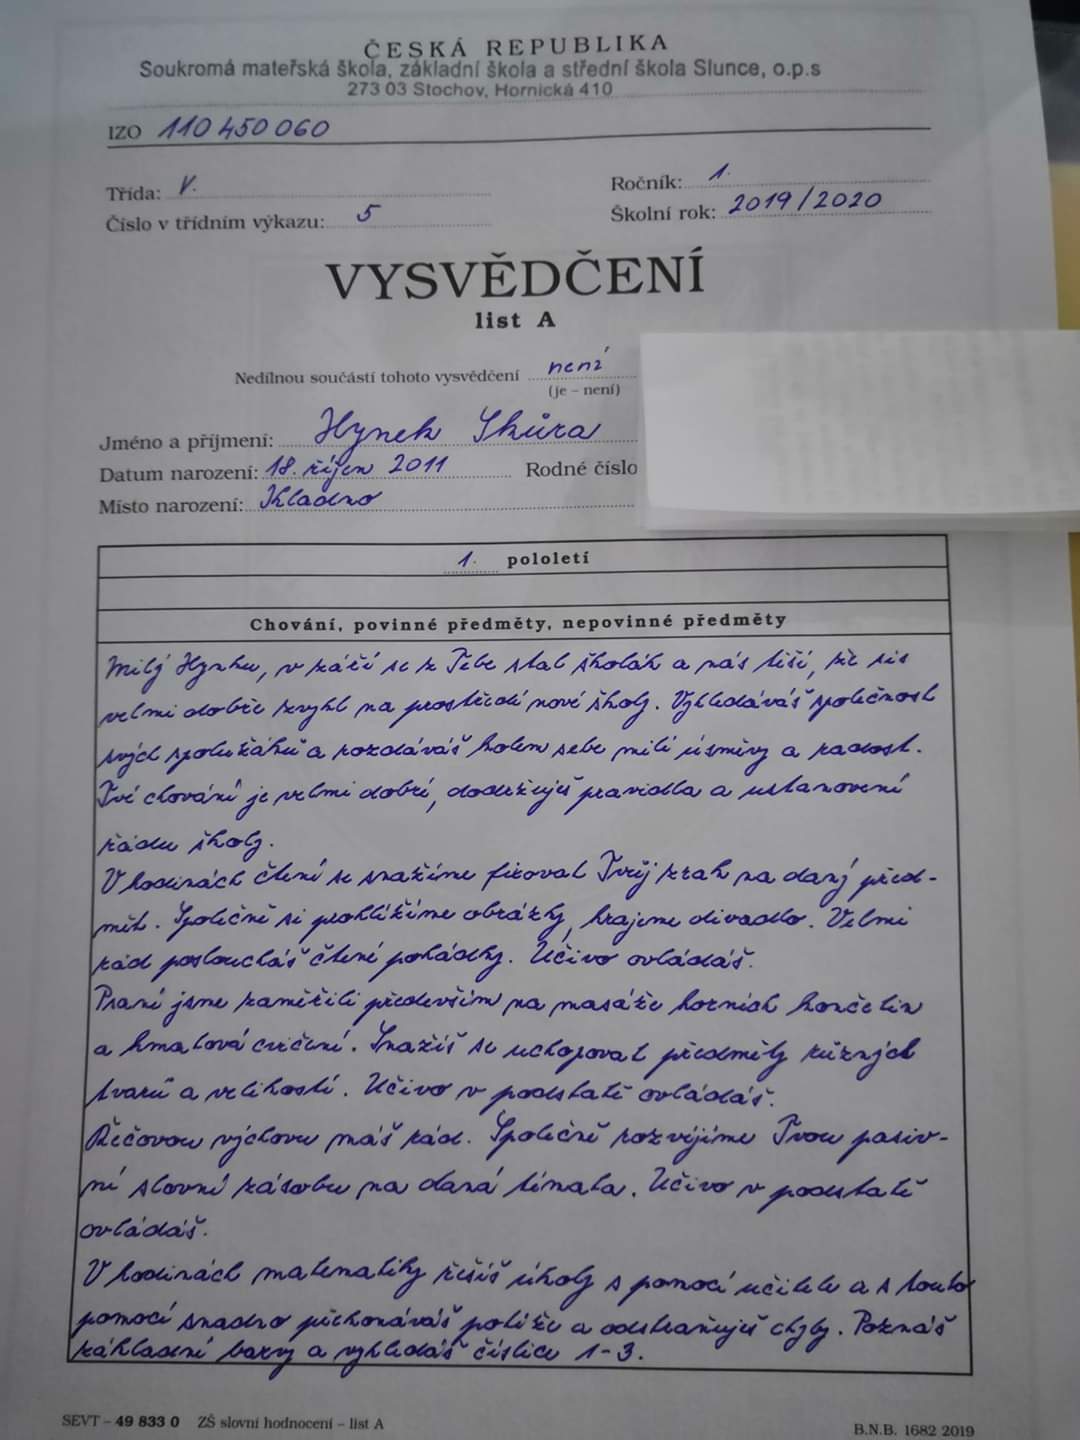 ČESKÁ REPUBLIKA
Soukromá mateřská škola, základní škola a střední škola Slunce, o.p.s
273 03 Stochov, Hornická 410
IZO 110 450 060
Třída: V. Ročník: 1.
Číslo v třídním výkazu: 5 Školní rok: 2019/2020
VYSVĚDČENÍ
list A
Nedílnou součástí tohoto vysvědčení není
(je – není)
Jméno a příjmení: Hynek Skůra
Datum narození: 18. říjen 2011 Rodné číslo
Místo narození: Kladno
1. pololetí
Chování, povinné předměty, nepovinné předměty
Milý Hynku, v září se z Tebe stal školák a nás těší, že sis
velmi dobře zvykl na prostředí nové školy. Vyhledáváš společnost
svých spolužáků a rozdáváš kolem sebe milé úsměvy a radost.
Tvé chování je velmi dobré, dodržuješ pravidla a ustanovení
řádu školy.
V hodinách čtení se snažíme fixovat Tvůj zrak na daný před-
mět. Společně si prohlížíme obrázky, hrajeme divadlo. Velmi
rád posloucháš čtené pohádky. Učivo ovládáš.
Psaní jsme zaměřili především na masáže horních končetin
a hmatová cvičení. Snažíš se uchopovat předměty různých
tvarů a velikostí. Učivo v podstatě ovládáš.
Řečovou výchovu máš rád. Společně rozvíjíme Tvou pasiv-
ní slovní zásobu na daná témata. Učivo v podstatě
ovládáš.
V hodinách matematiky řešíš úkoly s pomocí učitele a s touto
pomocí snadno překonáváš potíže a odstraňuješ chyby. Poznáš
základní barvy a vyhledáš číslice 1-3.
SEVT – 49 833 0 ZŠ slovní hodnocení – list A B.N.B. 1682 2019